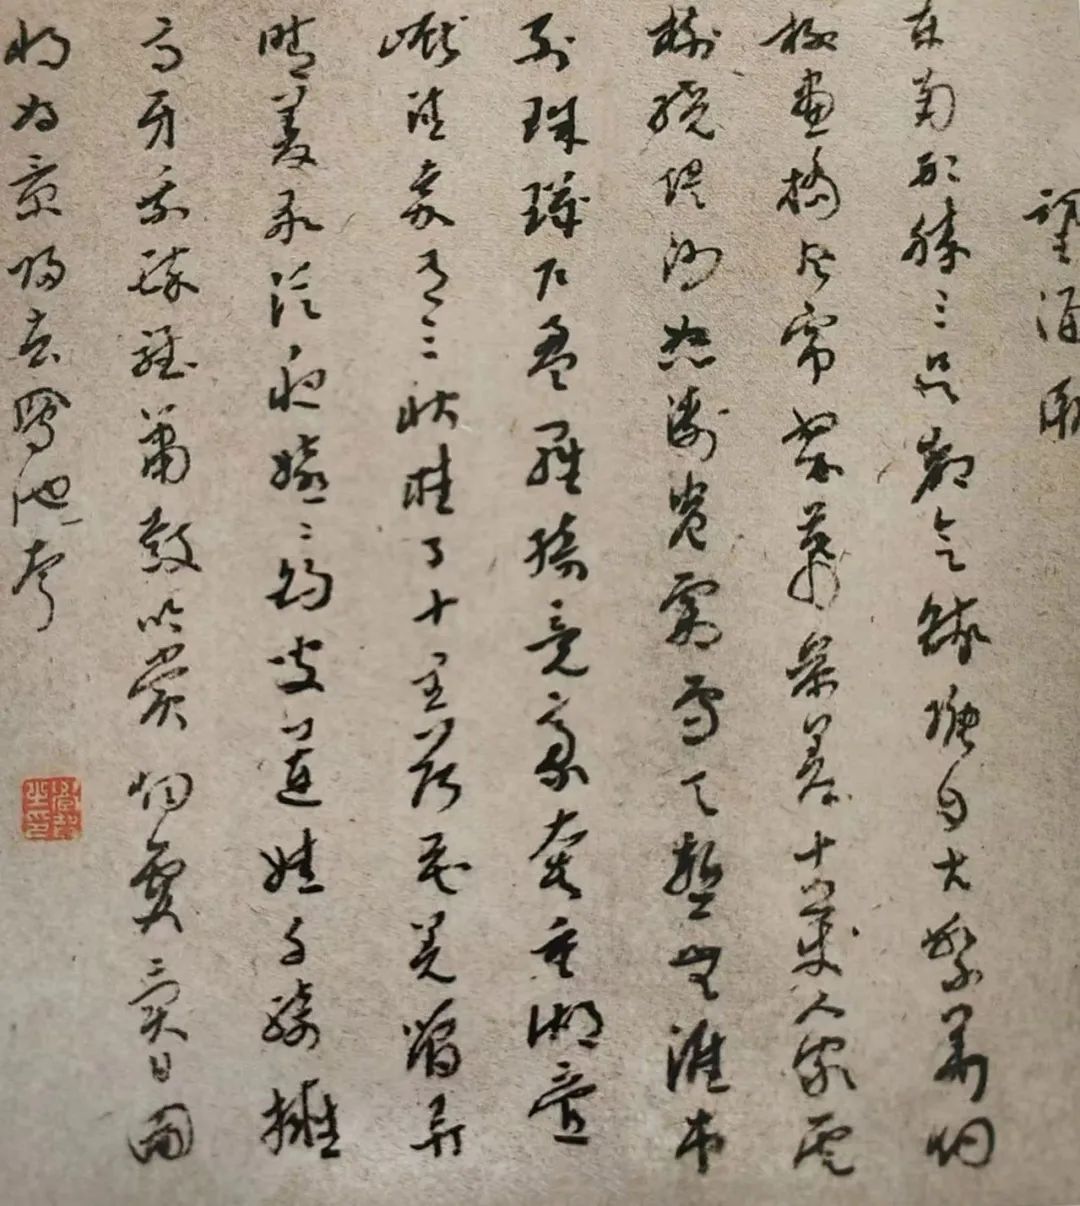 望海潮
東南形勝三吳都會錢塘自古繁華烟
柳畫橋風帘翠幕參差十萬人家雲
樹繞堤沙怒濤卷霜雪天塹無涯市
列珠璣戶盈羅綺競豪奢重湖疊
巘清嘉有三秋桂子十里荷花羌管弄
晴菱歌泛夜嬉〻釣叟蓮娃千騎擁
高牙乘醉聽簫鼓吟賞烟霞異日圖
將好景歸去鳳池夸